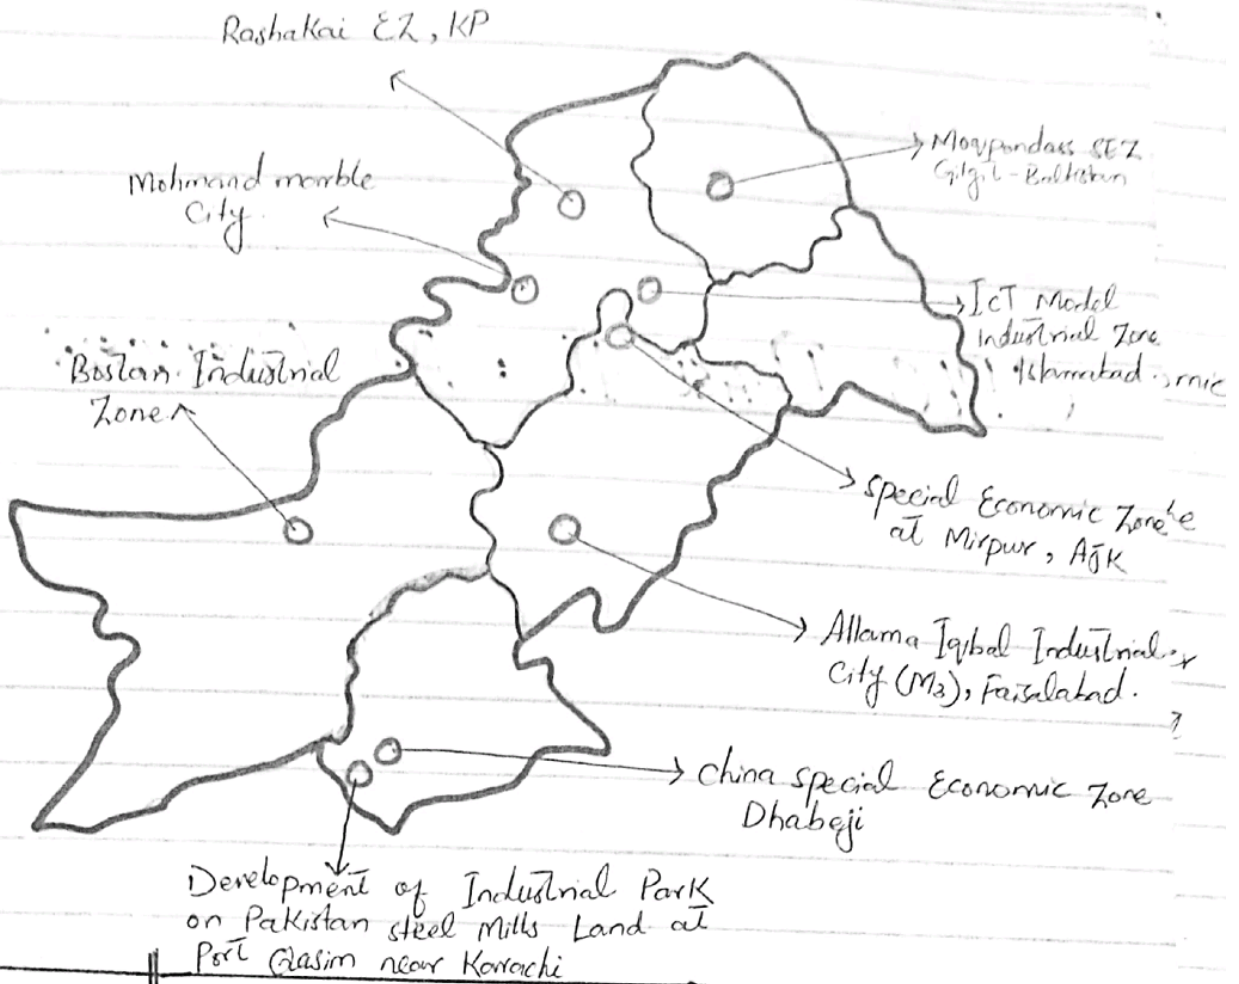 Rashakai EZ, KP
Moqpondass SEZ
Gilgit - Baltistan
Mohmand marble
City
IcT Model
Industrial Zone
Islamabad
Bostan Industrial
Zone
Special Economic Zone
at Mirpur, AJK
Allama Iqbal Industrial
City (M3), Faisalabad.
China Special Economic Zone
Dhabeji
Development of Industrial Park
on Pakistan steel Mills Land at
Port Qasim near Karachi